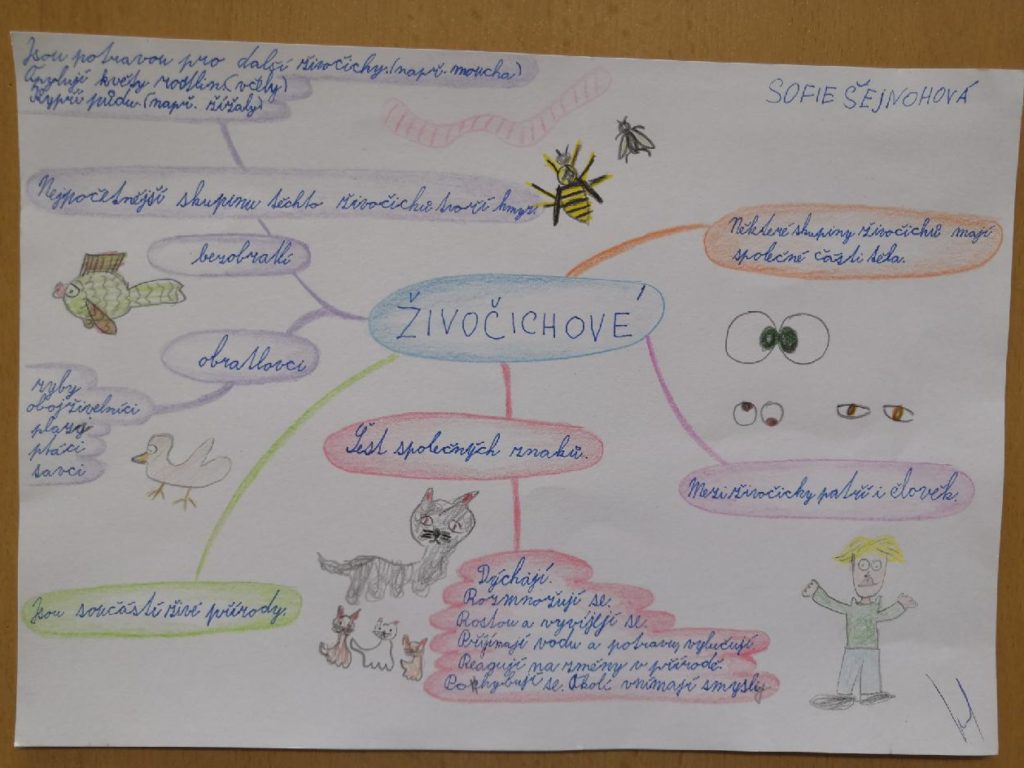 Jsou potravou pro další živočichy.(např. moucha)
Opylují květy rostlin.(včely)
Kypří půdu.(např. žížaly)
SOFIE ŠEJNOHOVÁ
Nejpočetnější skupinu těchto živočichů tvoří hmyz.
Některé skupiny živočichů mají
společné části těla.
bezobratlí
ŽIVOČICHOVÉ
obratlovci
ryby
obojživelníci
plazi
ptáci
savci
Šest společných znaků.
Mezi živočichy patří i člověk.
Jsou součástí živé přírody.
Dýchají.
Rozmnožují se.
Rostou a vyvíjejí se.
Přijímají vodu a potravu, vylučují.
Reagují na změny v přírodě.
Pohybují se. Okolí vnímají smysly